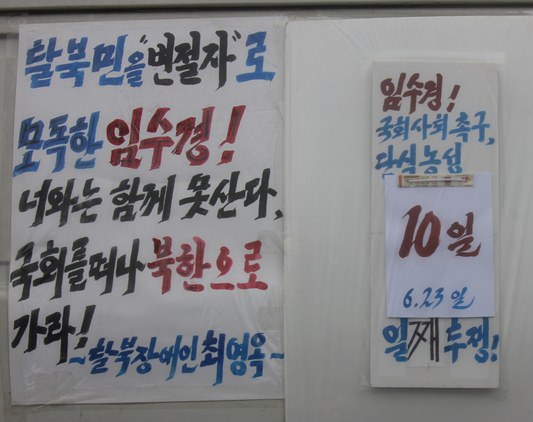 탈북민을 "변절자"로
모독한 임수경!
너와는 함께 못산다,
국회를 떠나 북한으로
가라!
~탈북장애인 최영옥~
임수경!
국회사퇴 촉구,
단식농성
10일
6.23일
일째 투쟁!